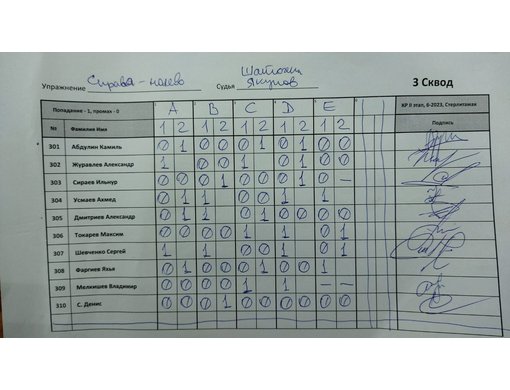 Упражнение Справа - налево Судья Шатохин Якупов 3 Сквод
Попадание - 1, промах - 0 A B C D E КР II этап, 6-2023, Стерлитамак
№ Фамилия Имя 1 2 1 2 1 2 1 2 1 2 Подпись
301 Абдулин Камиль 0 1 0 0 0 1 0 1 0 0
302 Журавлев Александр 1 0 0 1 0 1 0 0
303 Сираев Ильнур 0 0 0 1 0 0 0 1 0 —
304 Усмаев Ахмед 0 1 1 0 0 1 1
305 Дмитриев Александр 0 1 1 0 1 0 0 0 0
306 Токарев Максим 0 0 0 0 1 1 0 1
307 Шевченко Сергей 1 1 0 0 1 0 1
308 Фаргиев Яхья 0 1 0 0 0 1 0 0 1
309 Мелкишев Владимир 0 0 0 0 1 1 — —
310 С. Денис 0 0 0 1 0 0 0 0 0 0